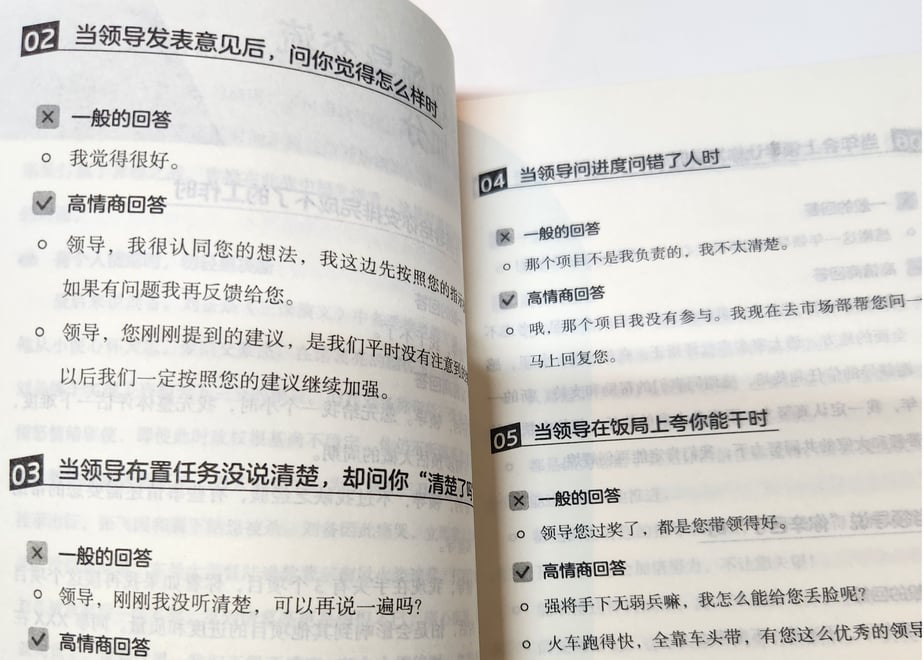 02 当领导发表意见后，问你觉得怎么样时
一般的回答
我觉得很好。
高情商回答
领导，我很认同您的想法，我这边先按照您的指
如果有问题我再反馈给您。
领导，您刚刚提到的建议，是我们平时没有注意到
以后我们一定按照您的建议继续加强。
03 当领导布置任务没说清楚，却问你“清楚了吗
一般的回答
领导，刚刚我没听清楚，可以再说一遍吗？
高情商回答
04 当领导问进度问错了人时
一般的回答
那个项目不是我负责的，我不太清楚。
高情商回答
哦，那个项目我没有参与。我现在去市场部帮您问一
马上回复您。
05 当领导在饭局上夸你能干时
一般的回答
领导您过奖了，都是您带领得好。
高情商回答
强将手下无弱兵嘛，我怎么能给您丢脸呢？
火车跑得快，全靠车头带，有您这么优秀的领导